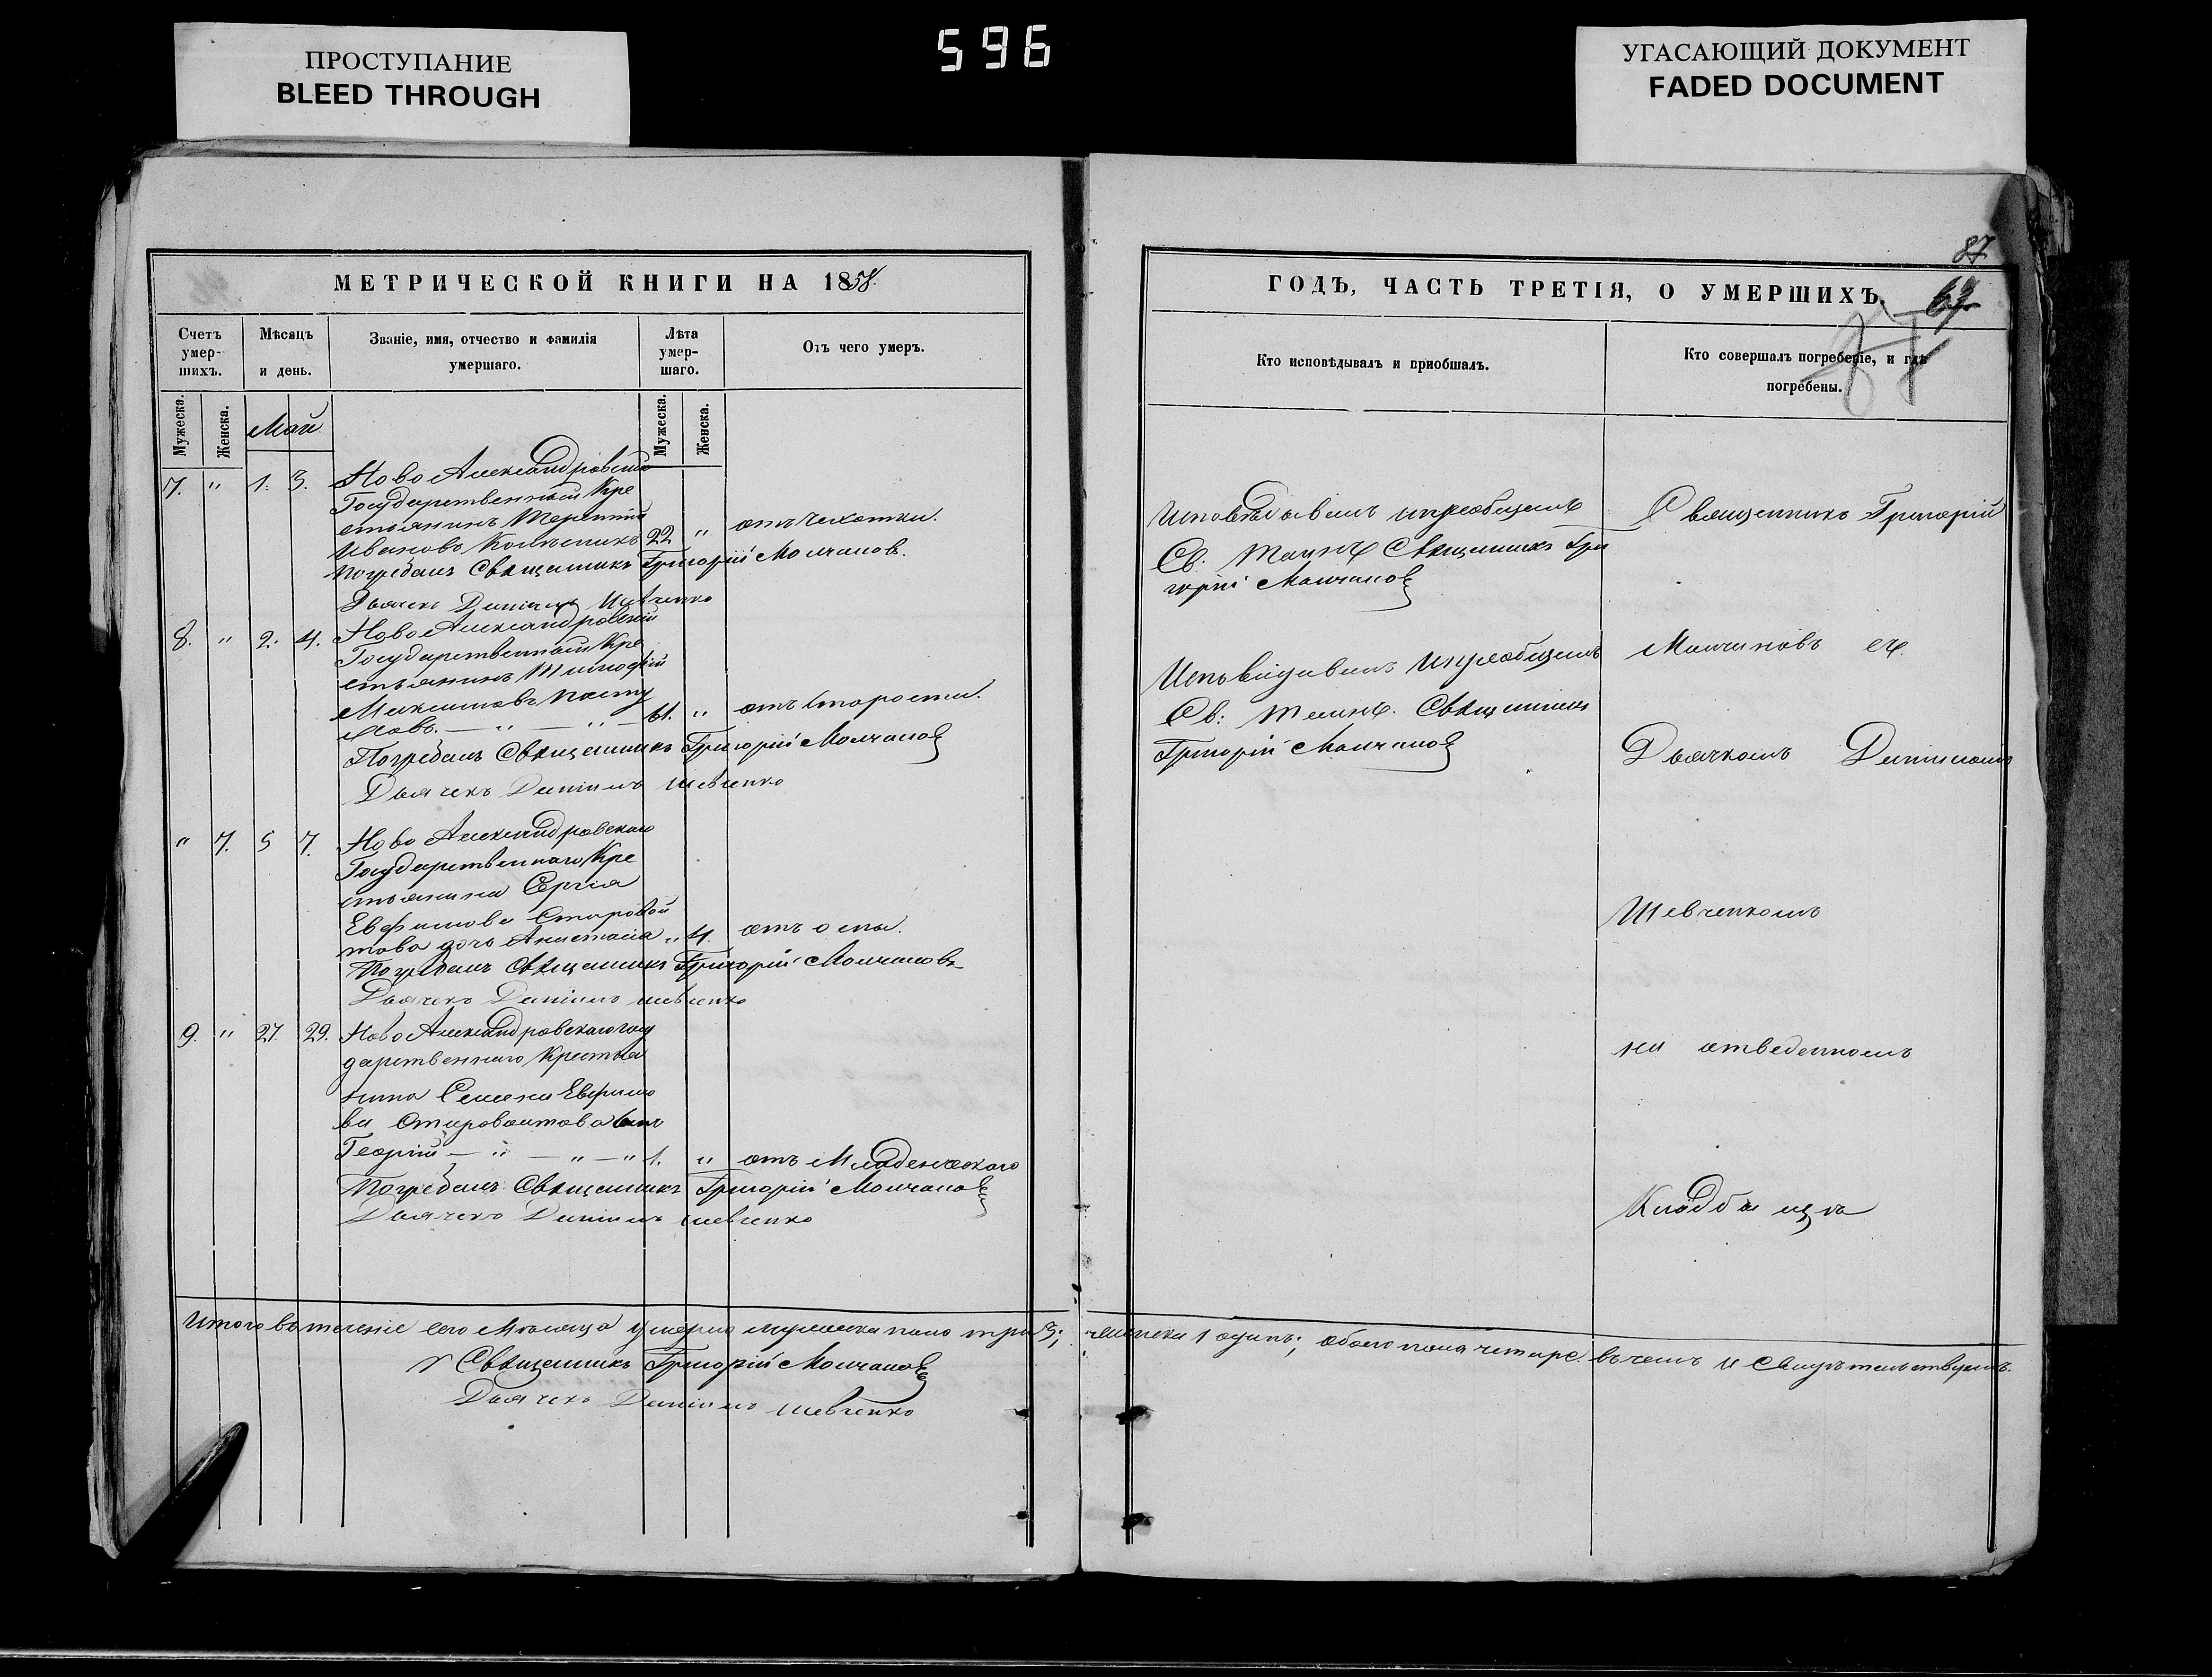 ПРОСТУПАНИЕ
BLEED THROUGH
596
УГАСАЮЩИЙ ДОКУМЕНТ
FADED DOCUMENT
МЕТРИЧЕСКОЙ КНИГИ НА 1858.
Счетъ умер-шихъ.
Мѣсяцъ и день.
Званіе, имя, отчество и фамилія умершаго.
Лѣта умер-шаго.
Отъ чего умеръ.
Мужеска.
Женска.
Май
Мужеска.
Женска.
7. " 1. 3. Ново Александровскій
Государственный Кре
стьянинъ Терентій
Ивановъ Колѣсникъ 22 " отъ чехотки.
Погребалъ Священникъ Григорій Молчановъ.
Дьячекъ Даніилъ Шевченко
8. " 2. 4. Ново Александровскій
Государственный Кре
стьянинъ Тимофій
Максимовъ Пасту
ховъ. — " — " — 61. " отъ старости.
Погребалъ Священникъ Григорій Молчановъ
Дьячекъ Даніилъ Шевченко
" 7. 5 7. Ново Александровскаго
Государственнаго Кре
стьянина Сергія
Евфимова Старовой
това дочь Анастасія " 4. отъ оспы.
Погребалъ Священникъ Григорій Молчановъ
Дьячекъ Даніилъ Шевченко
9. " 27. 29. Ново Александровскаго госу
дарственнаго Крестья
нина Семена Евфимо
ва Старовоитова сынъ
Георгій — " — " — " 1. " отъ Младенческаго
Погребалъ Священникъ Григорій Молчановъ
Дьячекъ Даніилъ Шевченко
Итого въ теченіе сего Мѣсяца умерло мужеска пола три 3;
Священникъ Григорій Молчановъ
Дьячекъ Даніилъ Шевченко
87
ГОДЪ, ЧАСТЬ ТРЕТІЯ, О УМЕРШИХЪ.
Кто исповѣдывалъ и приобшалъ.
Кто совершалъ погребеніе, и гдѣ погребены.
Исповѣдывалъ и приобщалъ
Св. Таинъ Священникъ Гри
горій Молчановъ
Исповѣдывалъ и приобщалъ
Св: Таинъ. Священникъ
Григорій Молчановъ
Священникъ Григорій
Молчановъ съ
Дьячкомъ Даніиломъ
Шевченкомъ
на отведенномъ
Кладбищѣ
женска 1 одинъ; обоего пола четыре. въ чемъ и свидѣтельствуемъ.